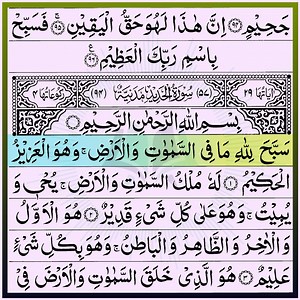 جَحِيْمٍ ﴿۹۴﴾ اِنَّ هٰذَا لَهُوَ حَقُّ الْيَقِيْنِ ﴿۹۵﴾ فَسَبِّحْ
بِاسْمِ رَبِّكَ الْعَظِيْمِ ﴿۹۶﴾
اٰيَاتُهَا ۲۹ (۵۷) سُوْرَةُ الْحَدِيْدِ مَدَنِيَّةٌ (۹۴) رُكُوْعَاتُهَا ۴
بِسْمِ اللّٰهِ الرَّحْمٰنِ الرَّحِيْمِ
سَبَّحَ لِلّٰهِ مَا فِى السَّمٰوٰتِ وَالْاَرْضِ ۚ وَهُوَ الْعَزِيْزُ
الْحَكِيْمُ ﴿۱﴾ لَهٗ مُلْكُ السَّمٰوٰتِ وَالْاَرْضِ ۚ يُحْىٖ وَ
يُمِيْتُ ۚ وَهُوَ عَلٰى كُلِّ شَىْءٍ قَدِيْرٌ ﴿۲﴾ هُوَ الْاَوَّلُ
وَالْاٰخِرُ وَالظَّاهِرُ وَالْبَاطِنُ ۚ وَهُوَ بِكُلِّ شَىْءٍ
عَلِيْمٌ ﴿۳﴾ هُوَ الَّذِىْ خَلَقَ السَّمٰوٰتِ وَالْاَرْضَ فِىْ